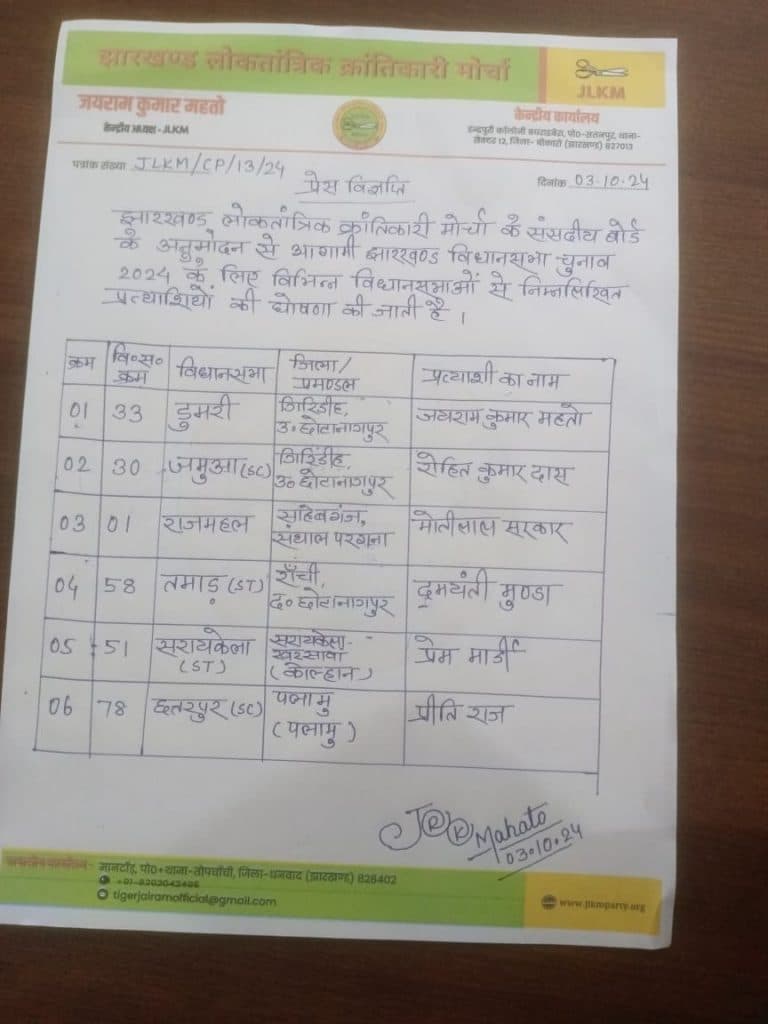 झारखण्ड लोकतांत्रिक क्रांतिकारी मोर्चा
JLKM
जयराम कुमार महतो
केन्द्रीय अध्यक्ष - JLKM
केन्द्रीय कार्यालय
सेक्टर 12, जिला- बोकारो (झारखण्ड) 827013
पत्रांक संख्या JLKM/CP/13/24
दिनांक 03.10.24
प्रेस विज्ञप्ति
झारखण्ड लोकतांत्रिक क्रांतिकारी मोर्चा के संसदीय बोर्ड
के अनुमोदन से आगामी झारखण्ड विधानसभा चुनाव
2024 के लिए विभिन्न विधानसभाओं से निम्नलिखित
प्रत्याशियों की घोषणा की जाती है ।
क्रम वि०स० क्रम विधानसभा जिला/ प्रमण्डल प्रत्याशी का नाम
01 33 डुमरी गिरिडीह, उ० छोटानागपुर जयराम कुमार महतो
02 30 जमुआ (SC) गिरिडीह, उ० छोटानागपुर रोहित कुमार दास
03 01 राजमहल साहेबगंज, संथाल परगना मोतीलाल सरकार
04 58 तमाड़ (ST) राँची, द० छोटानागपुर दमयंती मुण्डा
05 51 सरायकेला (ST) सरायकेला- खरसावा (कोल्हान) प्रेम मार्डी
06 78 छतरपुर (SC) पलामु (पलामु) प्रीति राज
Mahato
03.10.24
मानटाँड़, पो०+थाना-तोपचाँची, जिला-धनबाद (झारखण्ड) 828402
tigerjairamofficial@gmail.com
www.jlkmparty.org